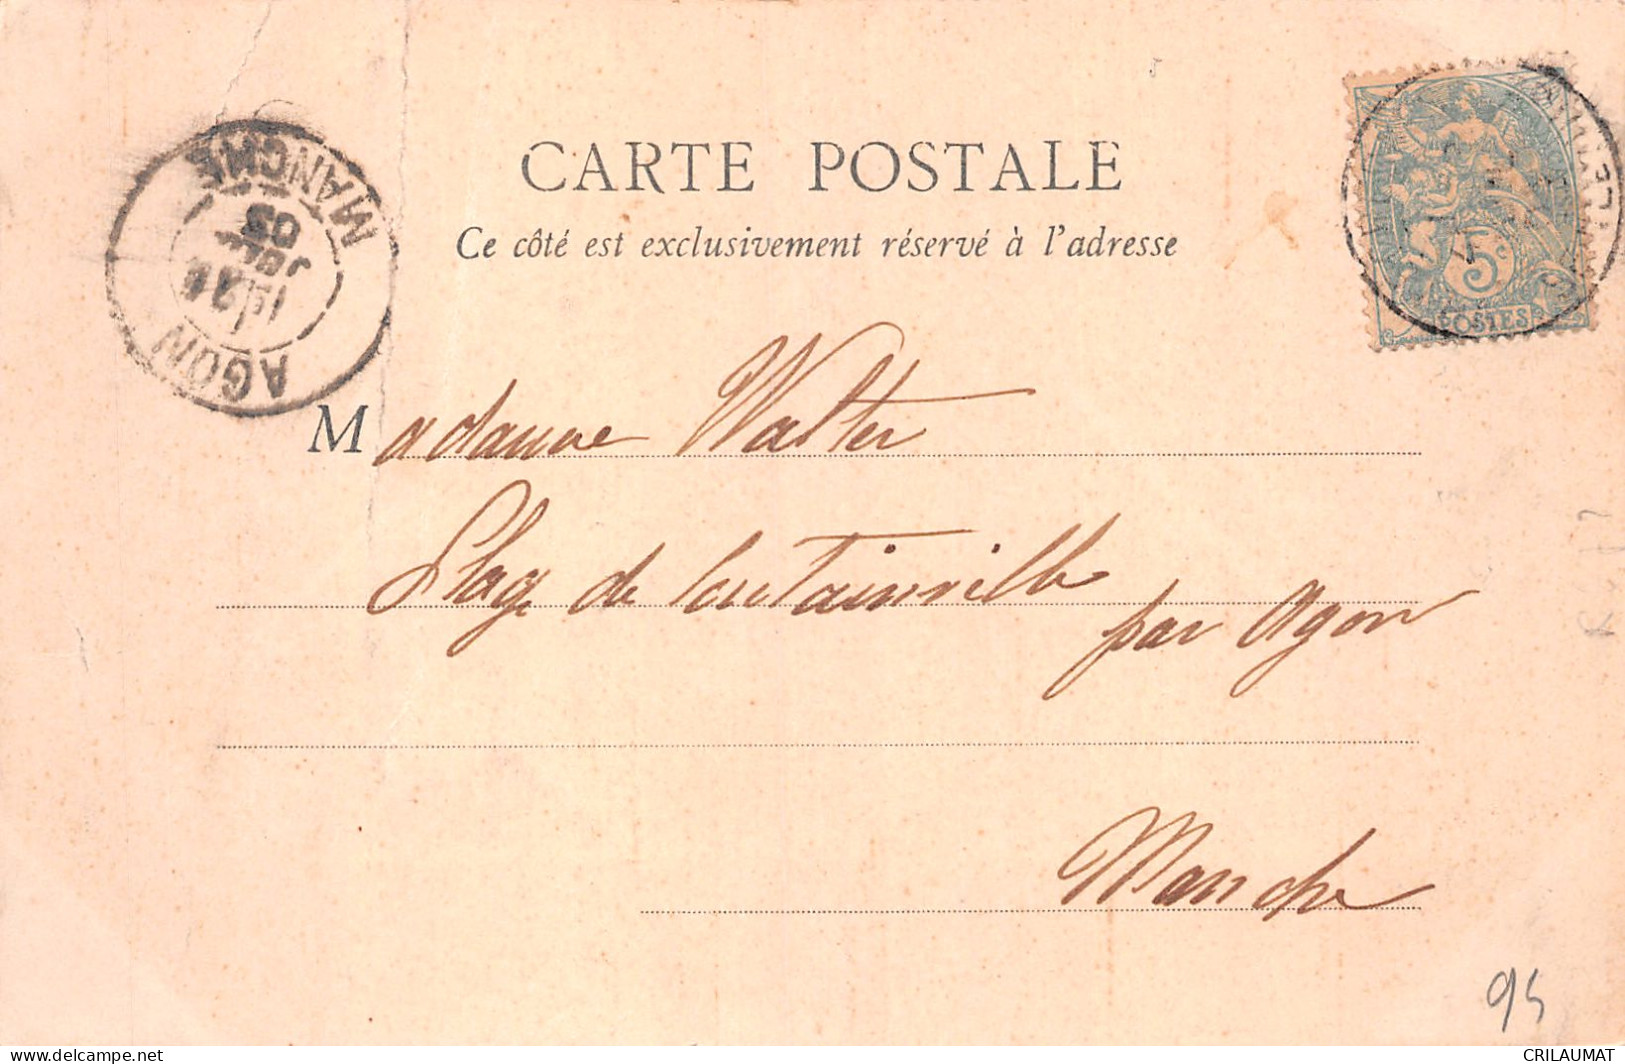 CARTE POSTALE
Ce côté est exclusivement réservé à l'adresse
AGON
MANCHE
03
5c
POSTES
Madame Walter
Plage de Coutainville
par Agon
Manche
95
delcampe.net
CRILAUMAT